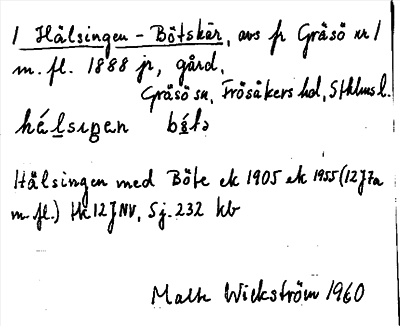 1 Hälsingen - Bötskär, avs fr Gräsö nr 1
m. fl. 1888 jr, gård,
Gräsö sn, Frösåkers hd, Sthlms l.
hélsıŋen bǿtə
Hälsingen med Böte ek 1905 ek 1955 (12J7a
m. fl.) Hk 12J NV, Sj. 232 kb
Malte Wickström 1960